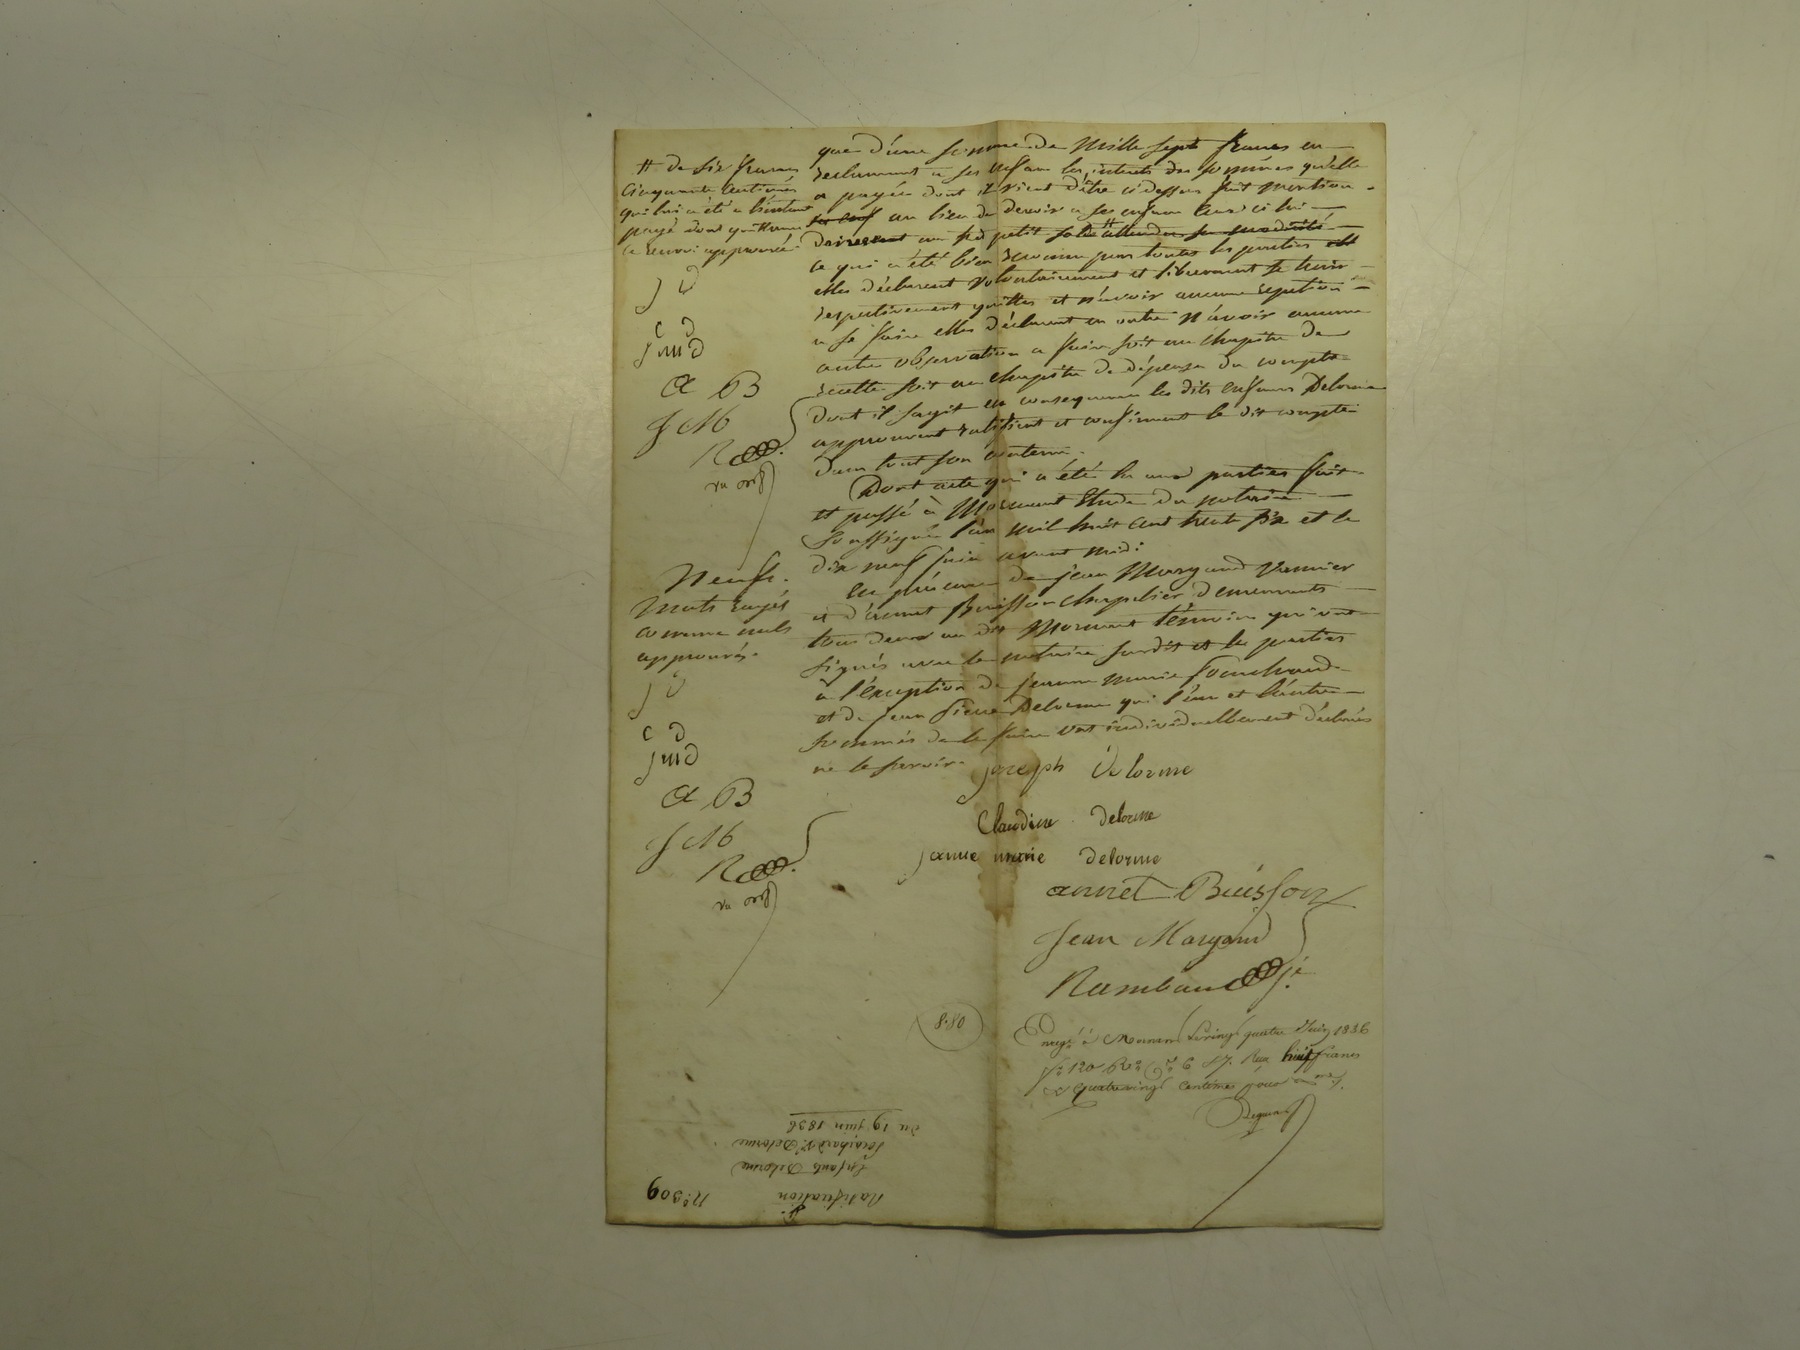 que d'une somme de Mille sept francs en
reclamant a ses enfans les interets des sommes qu'elle
a payées dont il vient d'être ci dessus fait mention
au lieu de devoir a ses enfans ceux ci lui
devraient un petit solde
ce qui a été bien reconnu par toutes les parties
elles déclarent volontairement et librement se tenir
respectivement quittes et n'avoir aucune repetition
a se faire elles déclarent en outre n'avoir aucune
autre observation a faire soit au chapitre de
recette soit au chapitre de dépense du compte
dont il s'agit en consequence les dits enfans Delorme
approuvent ratifient et confirment le dit compte
dans tout son contenu.
Dont acte qui a été lu aux parties fait
et passé à Mornant Etude du notaire
soussigné l'an mil huit cent trente six et le
dix neuf juin avant midi
En présence de Jean Margand
et d'annet Buisson chapelier demeurants
tous deux au dit Mornant témoins qui ont
signés avec le notaire susdit et les parties
à l'exception de jeanne marie
et de Jean Pierre Delorme qui l'un et l'autre
sommés de le faire ont individuellement déclarés
ne le savoir.
# de six francs
cinquante centimes
qui lui a été a l'instant
payé dont quittance
ce renvoi approuvé
J D
C D
J m D
a B
J M
R
Neuf
mots rayés
comme nuls
approuvés.
J D
C D
J m D
a B
J M
R
joseph Delorme
Claudine delorme
janne marie delorme
annet Buisson
Jean Margand
Rambaud
8.80
Enregé à Mornant le vingt quatre Juin 1836
fo 120 Ro Ce 6 Reçu huit francs
& quatrevingt centimes pour
du 19 juin 1836
Delorme
Enfants Delorme
Ratification
No. 309